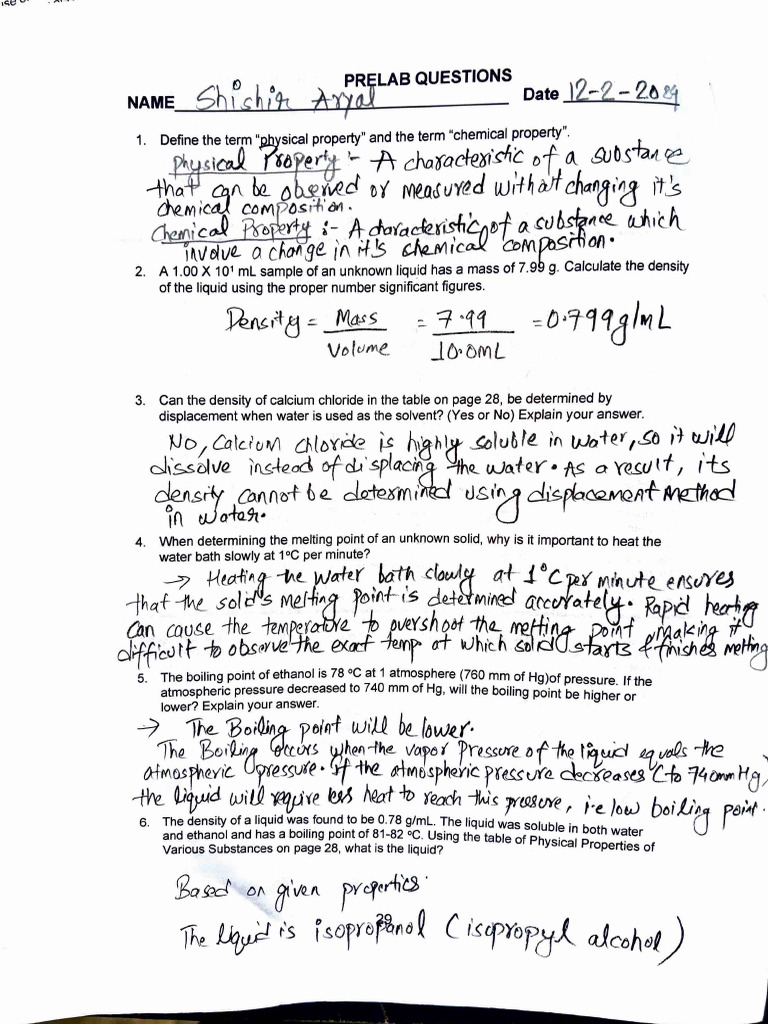 PRELAB QUESTIONS
NAME Shishir Aryal Date 12-2-2024
1. Define the term "physical property" and the term "chemical property".
Physical Property :- A characteristic of a substance
that can be observed or measured without changing it's
chemical composition.
Chemical Property :- A characteristic of a substance which
involve a change in it's chemical composition.
2. A 1.00 X 10¹ mL sample of an unknown liquid has a mass of 7.99 g. Calculate the density
of the liquid using the proper number significant figures.
Density = Mass / Volume = 7.99 / 10.0mL = 0.799g/mL
3. Can the density of calcium chloride in the table on page 28, be determined by
displacement when water is used as the solvent? (Yes or No) Explain your answer.
No, Calcium Chloride is highly soluble in water, so it will
dissolve instead of displacing the water. As a result, its
density cannot be determined using displacement method
in water.
4. When determining the melting point of an unknown solid, why is it important to heat the
water bath slowly at 1°C per minute?
→ Heating the water bath slowly at 1°C per minute ensures
that the solid's melting point is determined accurately. Rapid heating
can cause the temperature to overshoot the melting point, making it
difficult to observe the exact temp. at which solid starts & finishes melting
5. The boiling point of ethanol is 78 ºC at 1 atmosphere (760 mm of Hg)of pressure. If the
atmospheric pressure decreased to 740 mm of Hg, will the boiling point be higher or
lower? Explain your answer.
→ The Boiling point will be lower.
The Boiling occurs when the vapor pressure of the liquid equals the
atmospheric pressure. If the atmospheric pressure decreases (to 740mmHg,
the liquid will require less heat to reach this pressure, i.e low boiling point.
6. The density of a liquid was found to be 0.78 g/mL. The liquid was soluble in both water
and ethanol and has a boiling point of 81-82 ºC. Using the table of Physical Properties of
Various Substances on page 28, what is the liquid?
Based on given properties.
The liquid is isopropanol (isopropyl alcohol)
29